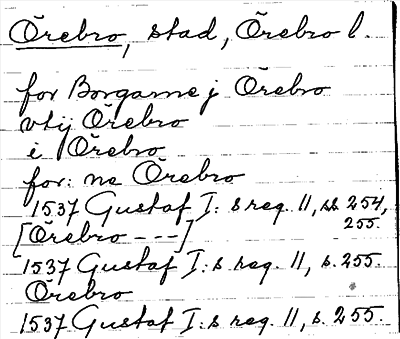 Örebro, stad, Örebro l.
for Borgarne j Örebro
vtij Örebro
i Örebro
for: ne Örebro
1537 Gustaf I:s reg. 11, ss. 254,
255.
[Örebro ---]
1537 Gustaf I:s reg. 11, s. 255.
Örebro
1537 Gustaf I:s reg. 11, s. 255.